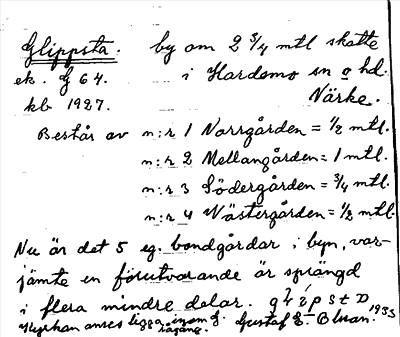 Glippsta. by om 2 3/4 mtl skatte
ek. G 64. i Hardemo sn o hd.
kb 1927. Närke.
Består av n:r 1 Norrgården = 1/2 mtl.
n:r 2 Mellangården = 1 mtl.
n:r 3 Södergården = 3/4 mtl.
n:r 4 Västergården = 1/2 mtl.
Nu är det 5 eg. bondgårdar i byn, var-
jämte en förutvarande är sprängd
i flera mindre delar.
Kyrkan anses ligga inom G. ägang. Gustaf E. 1933